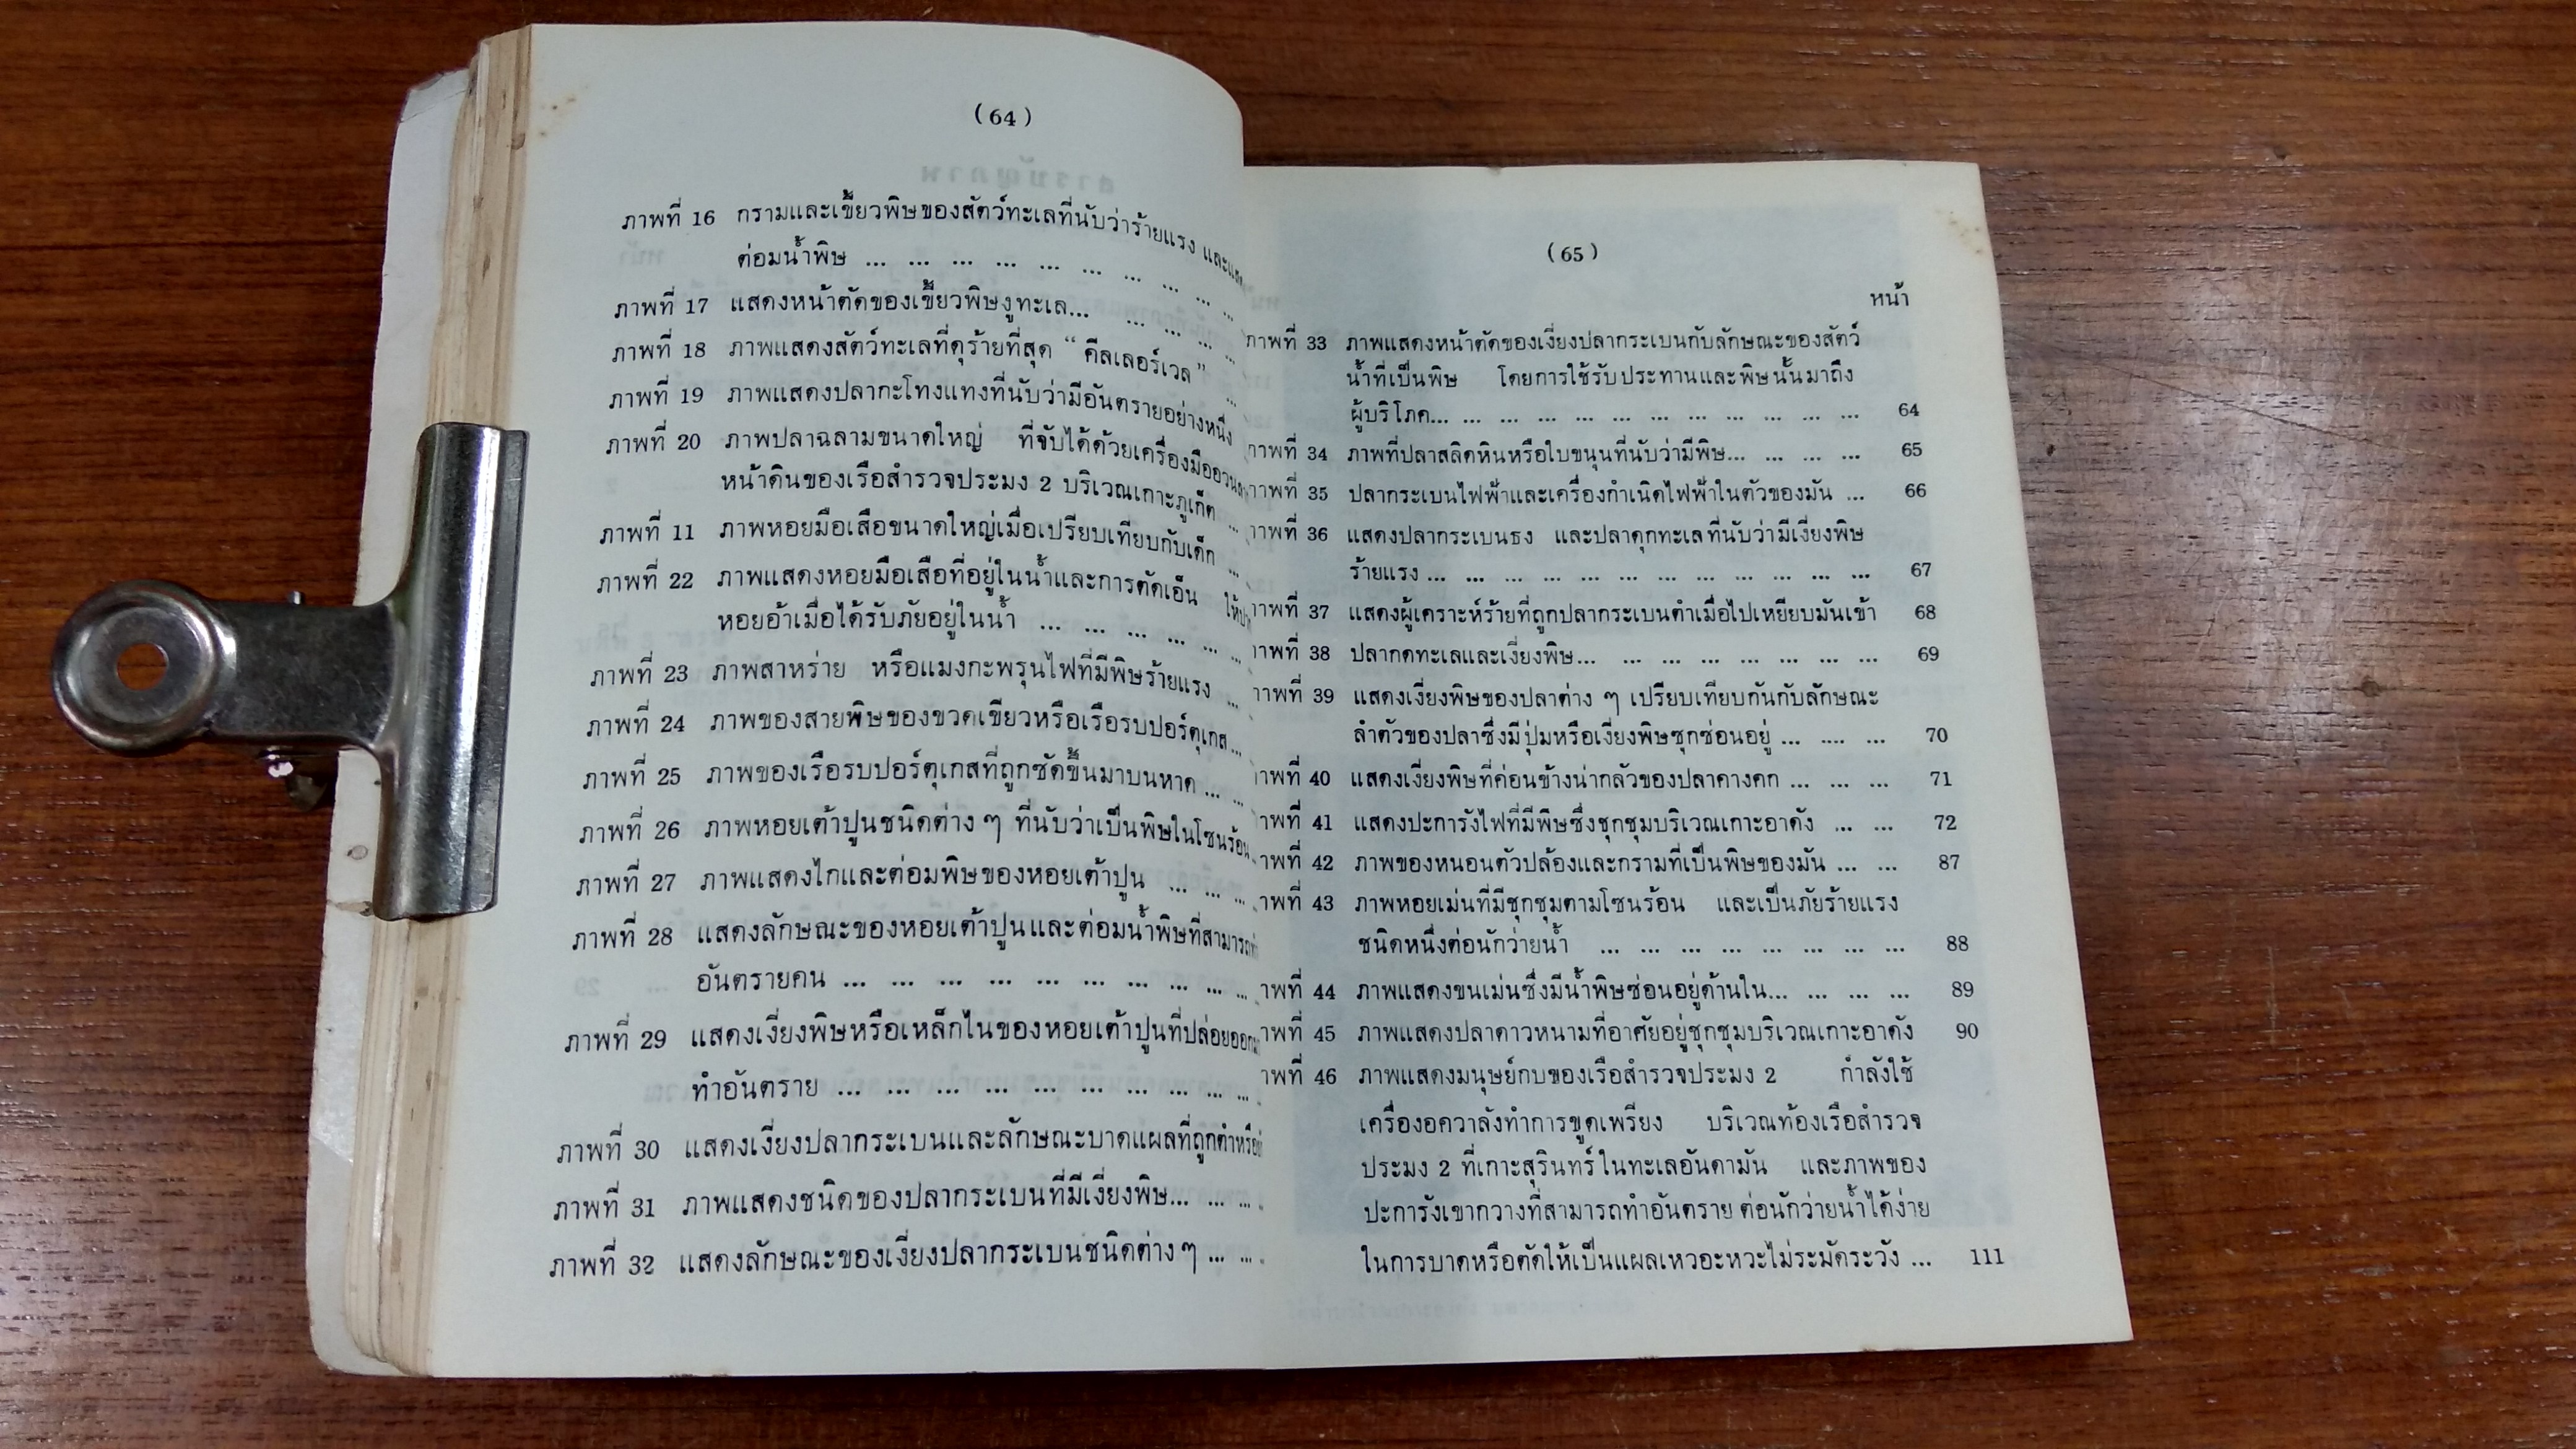 (64)
ภาพที่ 16 กรามและเขี้ยวพิษของสัตว์ทะเลที่นับว่าร้ายแรง
ต่อมน้ำพิษ ... ... ... ... ... ... ... ... ...
ภาพที่ 17 แสดงหน้าตัดของเขี้ยวพิษงูทะเล... ... ... ...
ภาพที่ 18 ภาพแสดงสัตว์ทะเลที่ดุร้ายที่สุด “ คีลเลอร์เวล”
ภาพที่ 19 ภาพแสดงปลากะโทงแทงที่นับว่ามีอันตรายอย่างหนึ่ง
ภาพที่ 20 ภาพปลาฉลามขนาดใหญ่ ที่จับได้ด้วยเครื่องมืออวน
หน้าดินของเรือสำรวจประมง 2 บริเวณเกาะภูเก็ต ...
ภาพที่ 11 ภาพหอยมือเสือขนาดใหญ่เมื่อเปรียบเทียบกับเด็ก ...
ภาพที่ 22 ภาพแสดงหอยมือเสือที่อยู่ในน้ำและการตัดเอ็น
หอยอ้าเมื่อได้รับภัยอยู่ในน้ำ ... ... ... ... ... ...
ภาพที่ 23 ภาพสาหร่าย หรือแมงกะพรุนไฟที่มีพิษร้ายแรง ...
ภาพที่ 24 ภาพของสายพิษของขวดเขียวหรือเรือรบปอร์ตุเกส...
ภาพที่ 25 ภาพของเรือรบปอร์ตุเกสที่ถูกซัดขึ้นมาบนหาด ... ...
ภาพที่ 26 ภาพหอยเต้าปูนชนิดต่าง ๆ ที่นับว่าเป็นพิษในโซนร้อน
ภาพที่ 27 ภาพแสดงไกและต่อมพิษของหอยเต้าปูน ... ... ...
ภาพที่ 28 แสดงลักษณะของหอยเต้าปูนและต่อมน้ำพิษที่สามารถ
อันตรายคน ... ... ... ... ... ... ... ... ...
ภาพที่ 29 แสดงเงี่ยงพิษหรือเหล็กไนของหอยเต้าปูนที่ปล่อย
ทำอันตราย ... ... ... ... ... ... ... ... ...
ภาพที่ 30 แสดงเงี่ยงปลากระเบนและลักษณะบาดแผลที่ถูกตำ
ภาพที่ 31 ภาพแสดงชนิดของปลากระเบนที่มีเงี่ยงพิษ... ... ...
ภาพที่ 32 แสดงลักษณะของเงี่ยงปลากระเบนชนิดต่าง ๆ ... ...
(65)
หน้า
ภาพที่ 33 ภาพแสดงหน้าตัดของเงี่ยงปลากระเบนกับลักษณะของสัตว์
น้ำที่เป็นพิษ โดยการใช้รับประทานและพิษนั้นมาถึง
ผู้บริโภค... ... ... ... ... ... ... ... ... ... ... ... 64
ภาพที่ 34 ภาพที่ปลาสลิดหินหรือใบขนุนที่นับว่ามีพิษ... ... ... ... 65
ภาพที่ 35 ปลากระเบนไฟฟ้าและเครื่องกำเนิดไฟฟ้าในตัวของมัน ... 66
ภาพที่ 36 แสดงปลากระเบนธง และปลาดุกทะเลที่นับว่ามีเงี่ยงพิษ
ร้ายแรง ... ... ... ... ... ... ... ... ... ... ... ... 67
ภาพที่ 37 แสดงผู้เคราะห์ร้ายที่ถูกปลากระเบนตำเมื่อไปเหยียบมันเข้า 68
ภาพที่ 38 ปลากดทะเลและเงี่ยงพิษ... ... ... ... ... ... ... ... 69
ภาพที่ 39 แสดงเงี่ยงพิษของปลาต่าง ๆ เปรียบเทียบกันกับลักษณะ
ลำตัวของปลาซึ่งมีปุ่มหรือเงี่ยงพิษซุกซ่อนอยู่ ... .... ... 70
ภาพที่ 40 แสดงเงี่ยงพิษที่ค่อนข้างน่ากลัวของปลาคางคก ... ... ... 71
าพที่ 41 แสดงปะการังไฟที่มีพิษซึ่งชุกชุมบริเวณเกาะอาดัง ... ... 72
าพที่ 42 ภาพของหนอนตัวปล้องและกรามที่เป็นพิษของมัน ... ... 87
าพที่ 43 ภาพหอยเม่นที่มีชุกชุมตามโซนร้อน และเป็นภัยร้ายแรง
ชนิดหนึ่งต่อนักว่ายน้ำ ... ... ... ... ... ... ... ... 88
าพที่ 44 ภาพแสดงขนเม่นซึ่งมีน้ำพิษซ่อนอยู่ด้านใน... ... ... ... 89
าพที่ 45 ภาพแสดงปลาดาวหนามที่อาศัยอยู่ชุกชุมบริเวณเกาะอาดัง 90
าพที่ 46 ภาพแสดงมนุษย์กบของเรือสำรวจประมง 2 กำลังใช้
เครื่องอควาลังทำการขูดเพรียง บริเวณท้องเรือสำรวจ
ประมง 2 ที่เกาะสุรินทร์ ในทะเลอันดามัน และภาพของ
ปะการังเขากวางที่สามารถทำอันตราย ต่อนักว่ายน้ำได้ง่าย
ในการบาดหรือตัดให้เป็นแผลเหวอะหวะไม่ระมัดระวัง ... 111